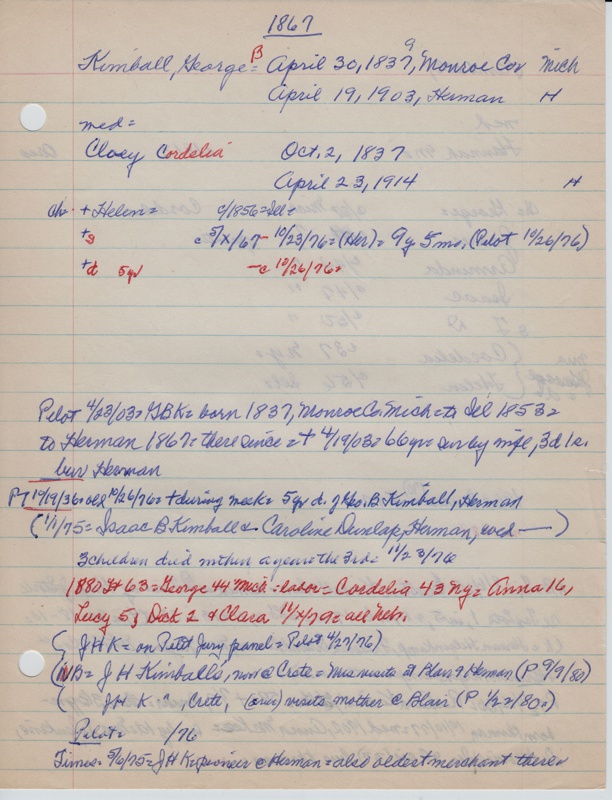 1867
Kimball, George B = April 30, 1837, 9 Monroe Co, Mich
April 19, 1903, Herman H
med =
Cloey Cordelia Oct. 2, 1837
April 23, 1914 H
ch. + Helen = c/1856 = Ill =
+s c 5/X/67 - 10/23/76 = (Her) = 9y 5mo, (Pilot 10/26/76)
+d 5yr - c 10/26/76 =
Pilot 4/23/03 = GBK = born 1837, Monroe Co. Mich = to Ill 1853 =
to Herman 1867 = there since = + 4/19/03 = 66yr = sur by wife, 3d 1s.
bur Herman
P 10/26/76 = + during week = 5yr d. of Geo. B Kimball, Herman
(1/1/75 = Isaac B Kimball & Caroline Dunlap, Herman, wed — )
3 children died within a year = the 3rd = 11/23/76
1880 H 63 = George 44 Mich = labor = Cordelia 43 NY = Anna 16,
Lucy 5, Dick 2 & Clara 11/X/79 = all Neb.
( J H K = on Petit Jury panel = Pilot 4/27/76)
(NB = J H Kimballs, now @ Crete = Mrs visits at Blair & Herman (P 9/9/80)
( J H K = , Crete, visits mother @ Blair (P 1/22/80 =)
Pilot = 1/76
Times = 5/6/75 = J H K = pioneer @ Herman = also oldest merchant there